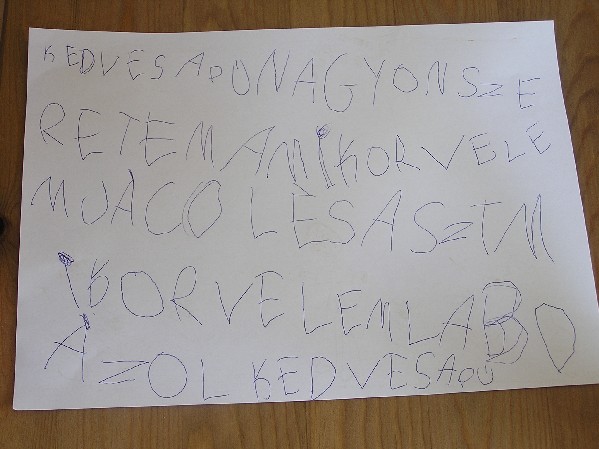 KEDVES APUNAGYON SZE
RETEM AMIKOR VELE
MJÁCO LÉSASZTM
IKOR VELEM LABD
ÁZOL KEDVESAPU